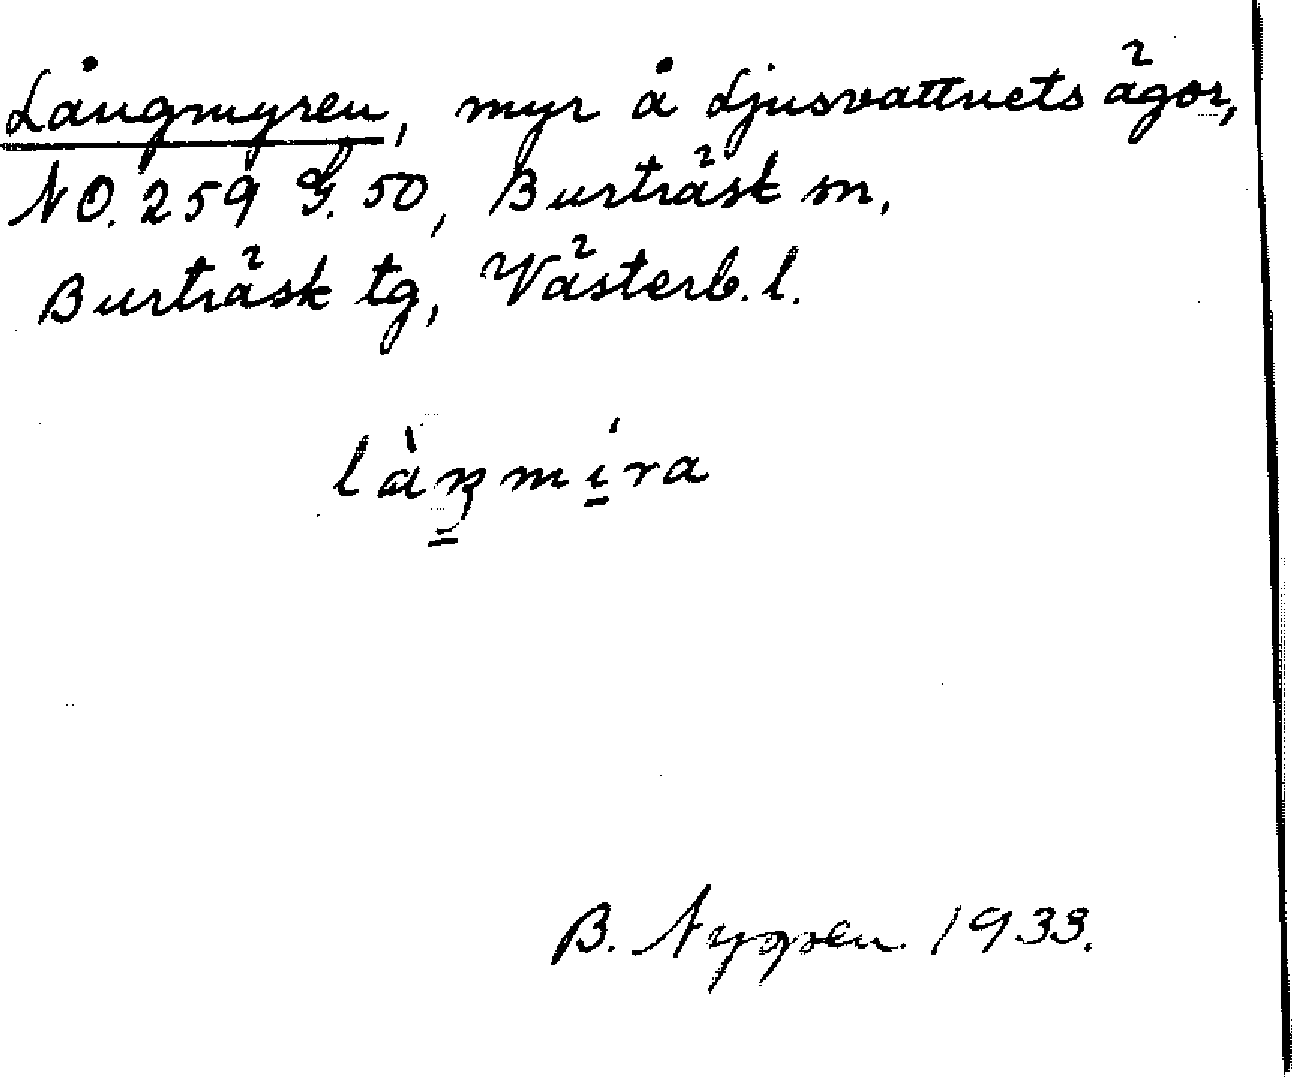 Långmyren, myr å Ljusvattnets ägor,
NO. 259 G. 50, Burträsk sn,
Burträsk tg, Västerb. l.
làŋmíra
B. Nygren 1933.